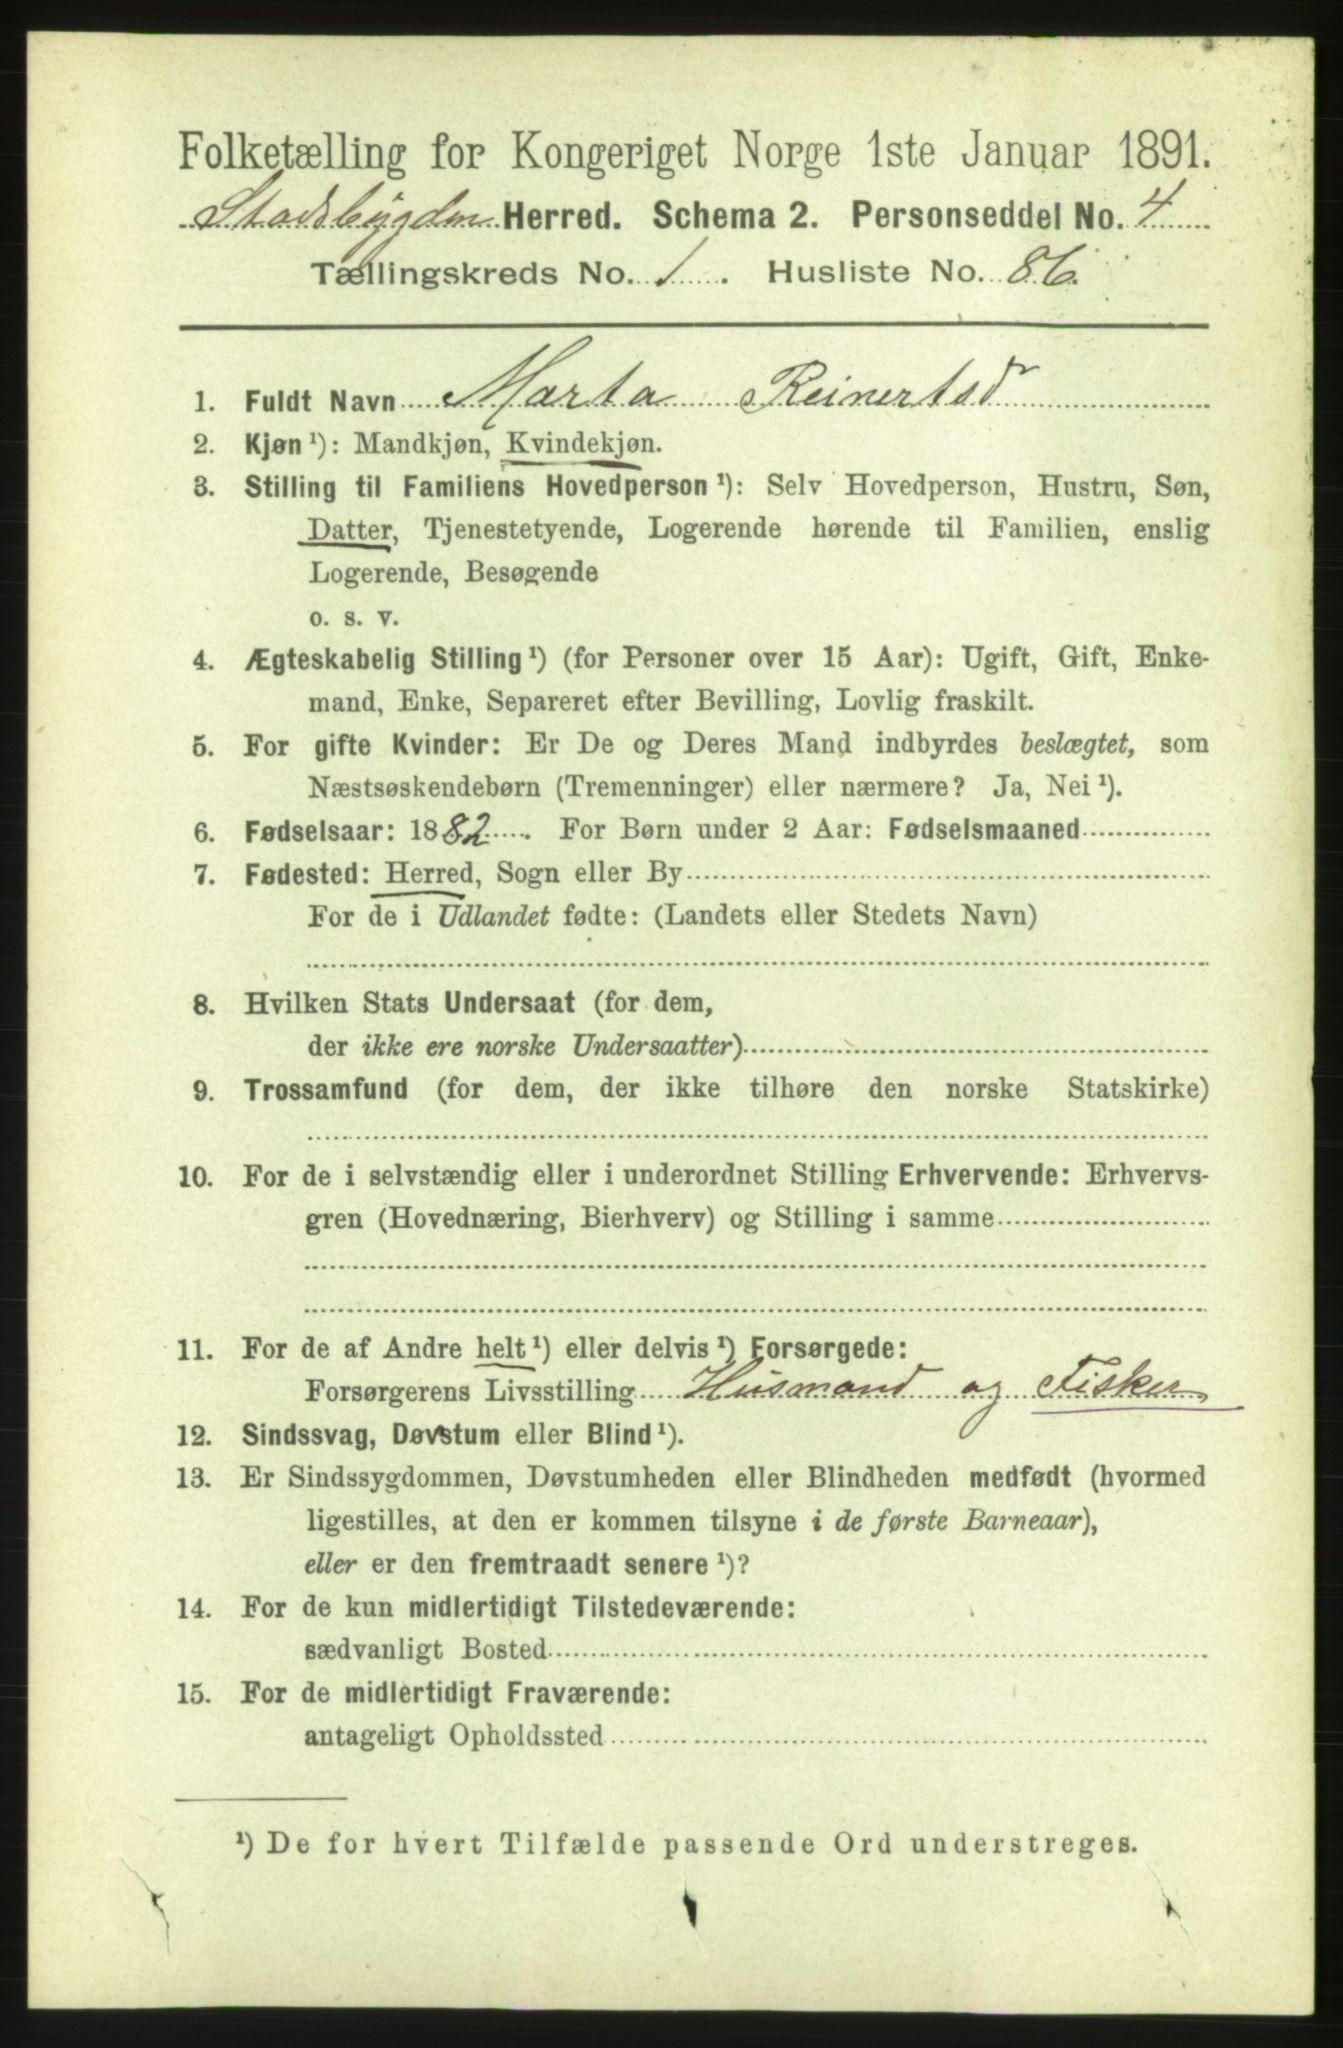 Folketælling for Kongeriget Norge 1ste Januar 1891.
Stadsbygden Herred. Schema 2. Personseddel No. 4
Tællingskreds No. 1. Husliste No. 86.
1. Fuldt Navn Marta Reinertsd
2. Kjøn¹): Mandkjøn, Kvindekjøn.
3. Stilling til Familiens Hovedperson¹): Selv Hovedperson, Hustru, Søn,
Datter, Tjenestetyende, Logerende hørende til Familien, enslig
Logerende, Besøgende
o. s. v.
4. Ægteskabelig Stilling¹) (for Personer over 15 Aar): Ugift, Gift, Enke-
mand, Enke, Separeret efter Bevilling, Lovlig fraskilt.
5. For gifte Kvinder: Er De og Deres Mand indbyrdes beslægtet, som
Næstsøskendebørn (Tremenninger) eller nærmere? Ja, Nei¹).
6. Fødselsaar: 1882. For Børn under 2 Aar: Fødselsmaaned
7. Fødested: Herred, Sogn eller By
For de i Udlandet fødte: (Landets eller Stedets Navn)
8. Hvilken Stats Undersaat (for dem,
der ikke ere norske Undersaatter)
9. Trossamfund (for dem, der ikke tilhøre den norske Statskirke)
10. For de i selvstændig eller i underordnet Stilling Erhvervende: Erhvervs-
gren (Hovednæring, Bierhverv) og Stilling i samme
11. For de af Andre helt¹) eller delvis¹) Forsørgede:
Forsørgerens Livsstilling Husmand og Fisker
12. Sindssvag, Døvstum eller Blind¹).
13. Er Sindssygdommen, Døvstumheden eller Blindheden medfødt (hvormed
ligestilles, at den er kommen tilsyne i de første Barneaar),
eller er den fremtraadt senere¹)?
14. For de kun midlertidigt Tilstedeværende:
sædvanligt Bosted
15. For de midlertidigt Fraværende:
antageligt Opholdssted
¹) De for hvert Tilfælde passende Ord understreges.